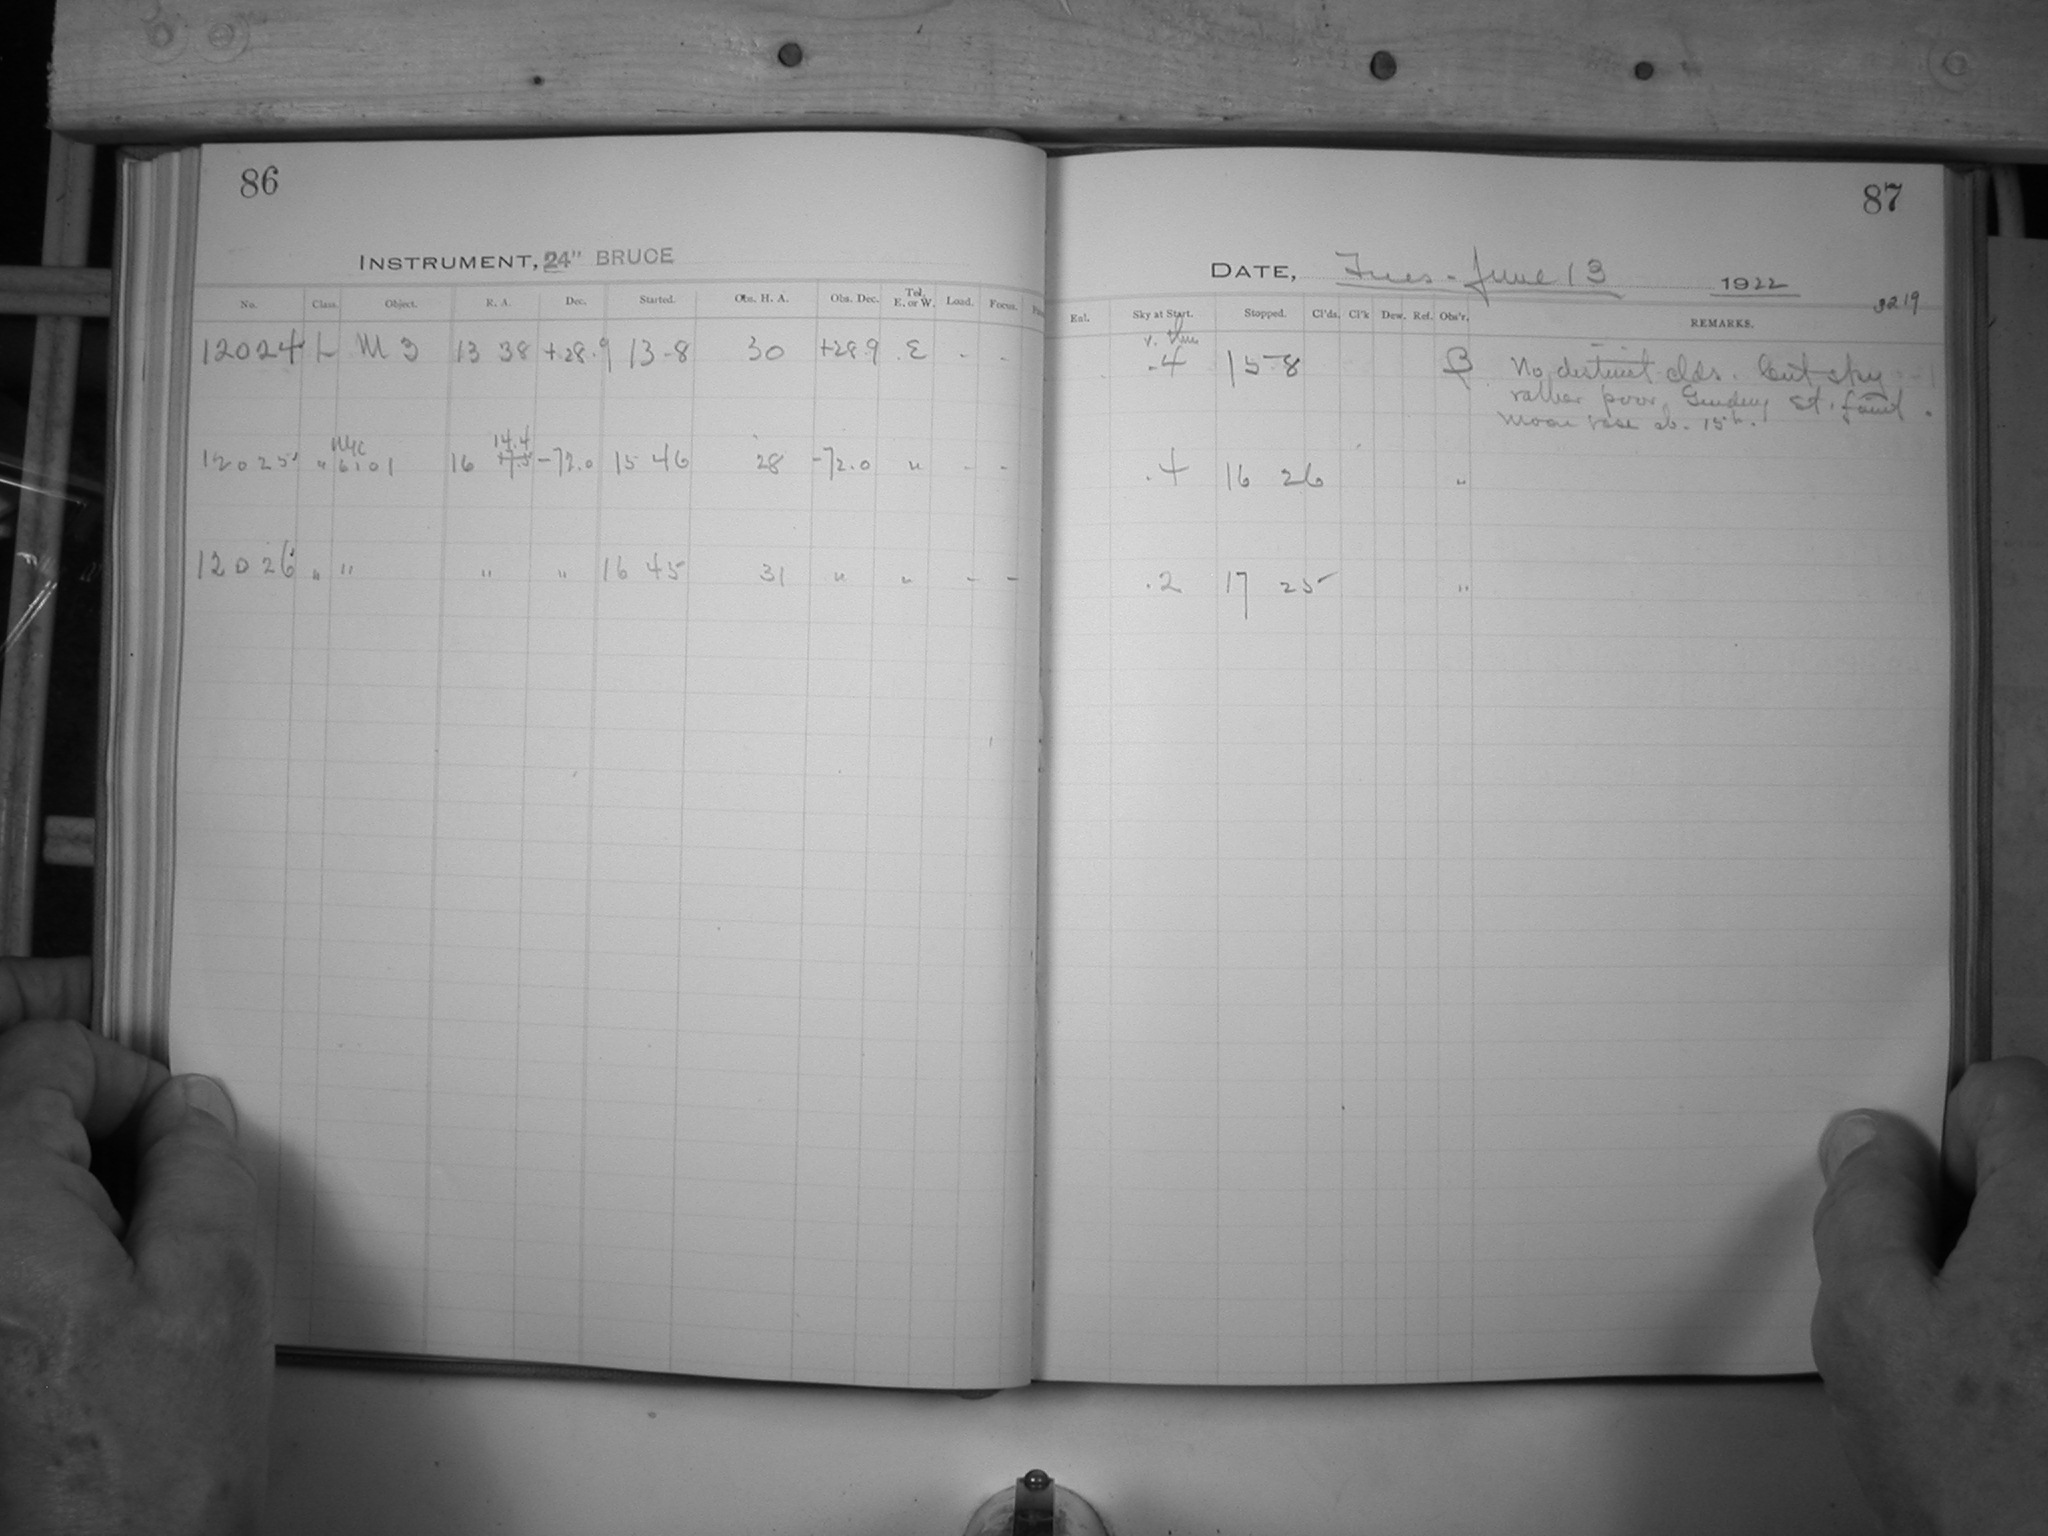 86
INSTRUMENT, 24" BRUCE
No. Class. Object. R. A. Dec. Started. Obs. H. A. Obs. Dec. Tel. E. or W. Load. Focus.
12024 L M 3 13 38 +28.9 13-8 30 +28.9 E - -
NGC 14.4
12025 " 6101 16 17.5 -72.0 15 46 28 -72.0 " - -
12026 " " " " 16 45 31 " " - -
87
DATE, Tues - June 13 1922
3219
Sky at Start. Stopped. Cl'ds. Cl'k Dew. Ref. Obs'r. REMARKS.
.4 15-8 B No distinct clds. but sky
rather poor, Guiding st. faint.
Moon rose ab. 15h.
.4 16 26 "
.2 17 25 "